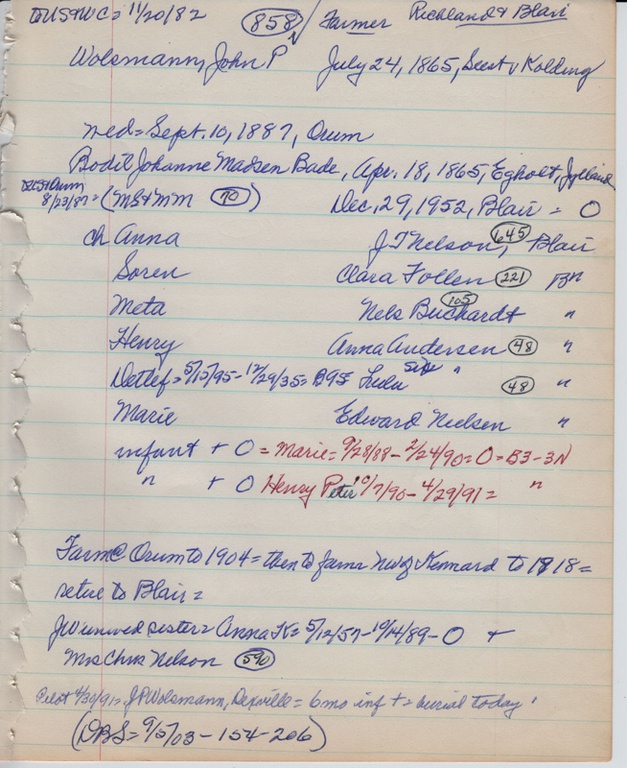 toUS&WC = 11/20/82 858 / Farmer Richland & Blair
Wolsmann, John P July 24, 1865, Seest v Kolding
med = Sept. 10, 1887, Orum
Bodil Johanne Madsen Bade, Apr. 18, 1865, Egholt, Jylland
toUS&Orum
8/23/87 = (MS&MM 70) Dec. 29, 1952, Blair = O
ch Anna J T Nelson, 645 Blair
Soren Clara Follen 221 Bn
Meta Nels Buchardt 105 "
Henry Anna Andersen 48 "
Detlef = 5/15/95 - 12/29/35 = B95 Lulu " 48 "
Marie Edward Nielsen "
infant + O = Marie = 9/28/88 - 2/24/90 = O = B3-3N
" + O Henry Peter 10/7/90 - 4/29/91 = "
Farm @ Orum to 1904 = then to farm NW of Kennard to 1918 =
retire to Blair =
JW unwed sister = Anna K = 5/12/57 - 10/14/89 - O +
Mrs Chris Nelson 590
Pilot 4/30/91 = J P Wolsmann, Dexville = 6 mo inf + = burial today '
(DBS = 9/5/03 - 154 - 206)